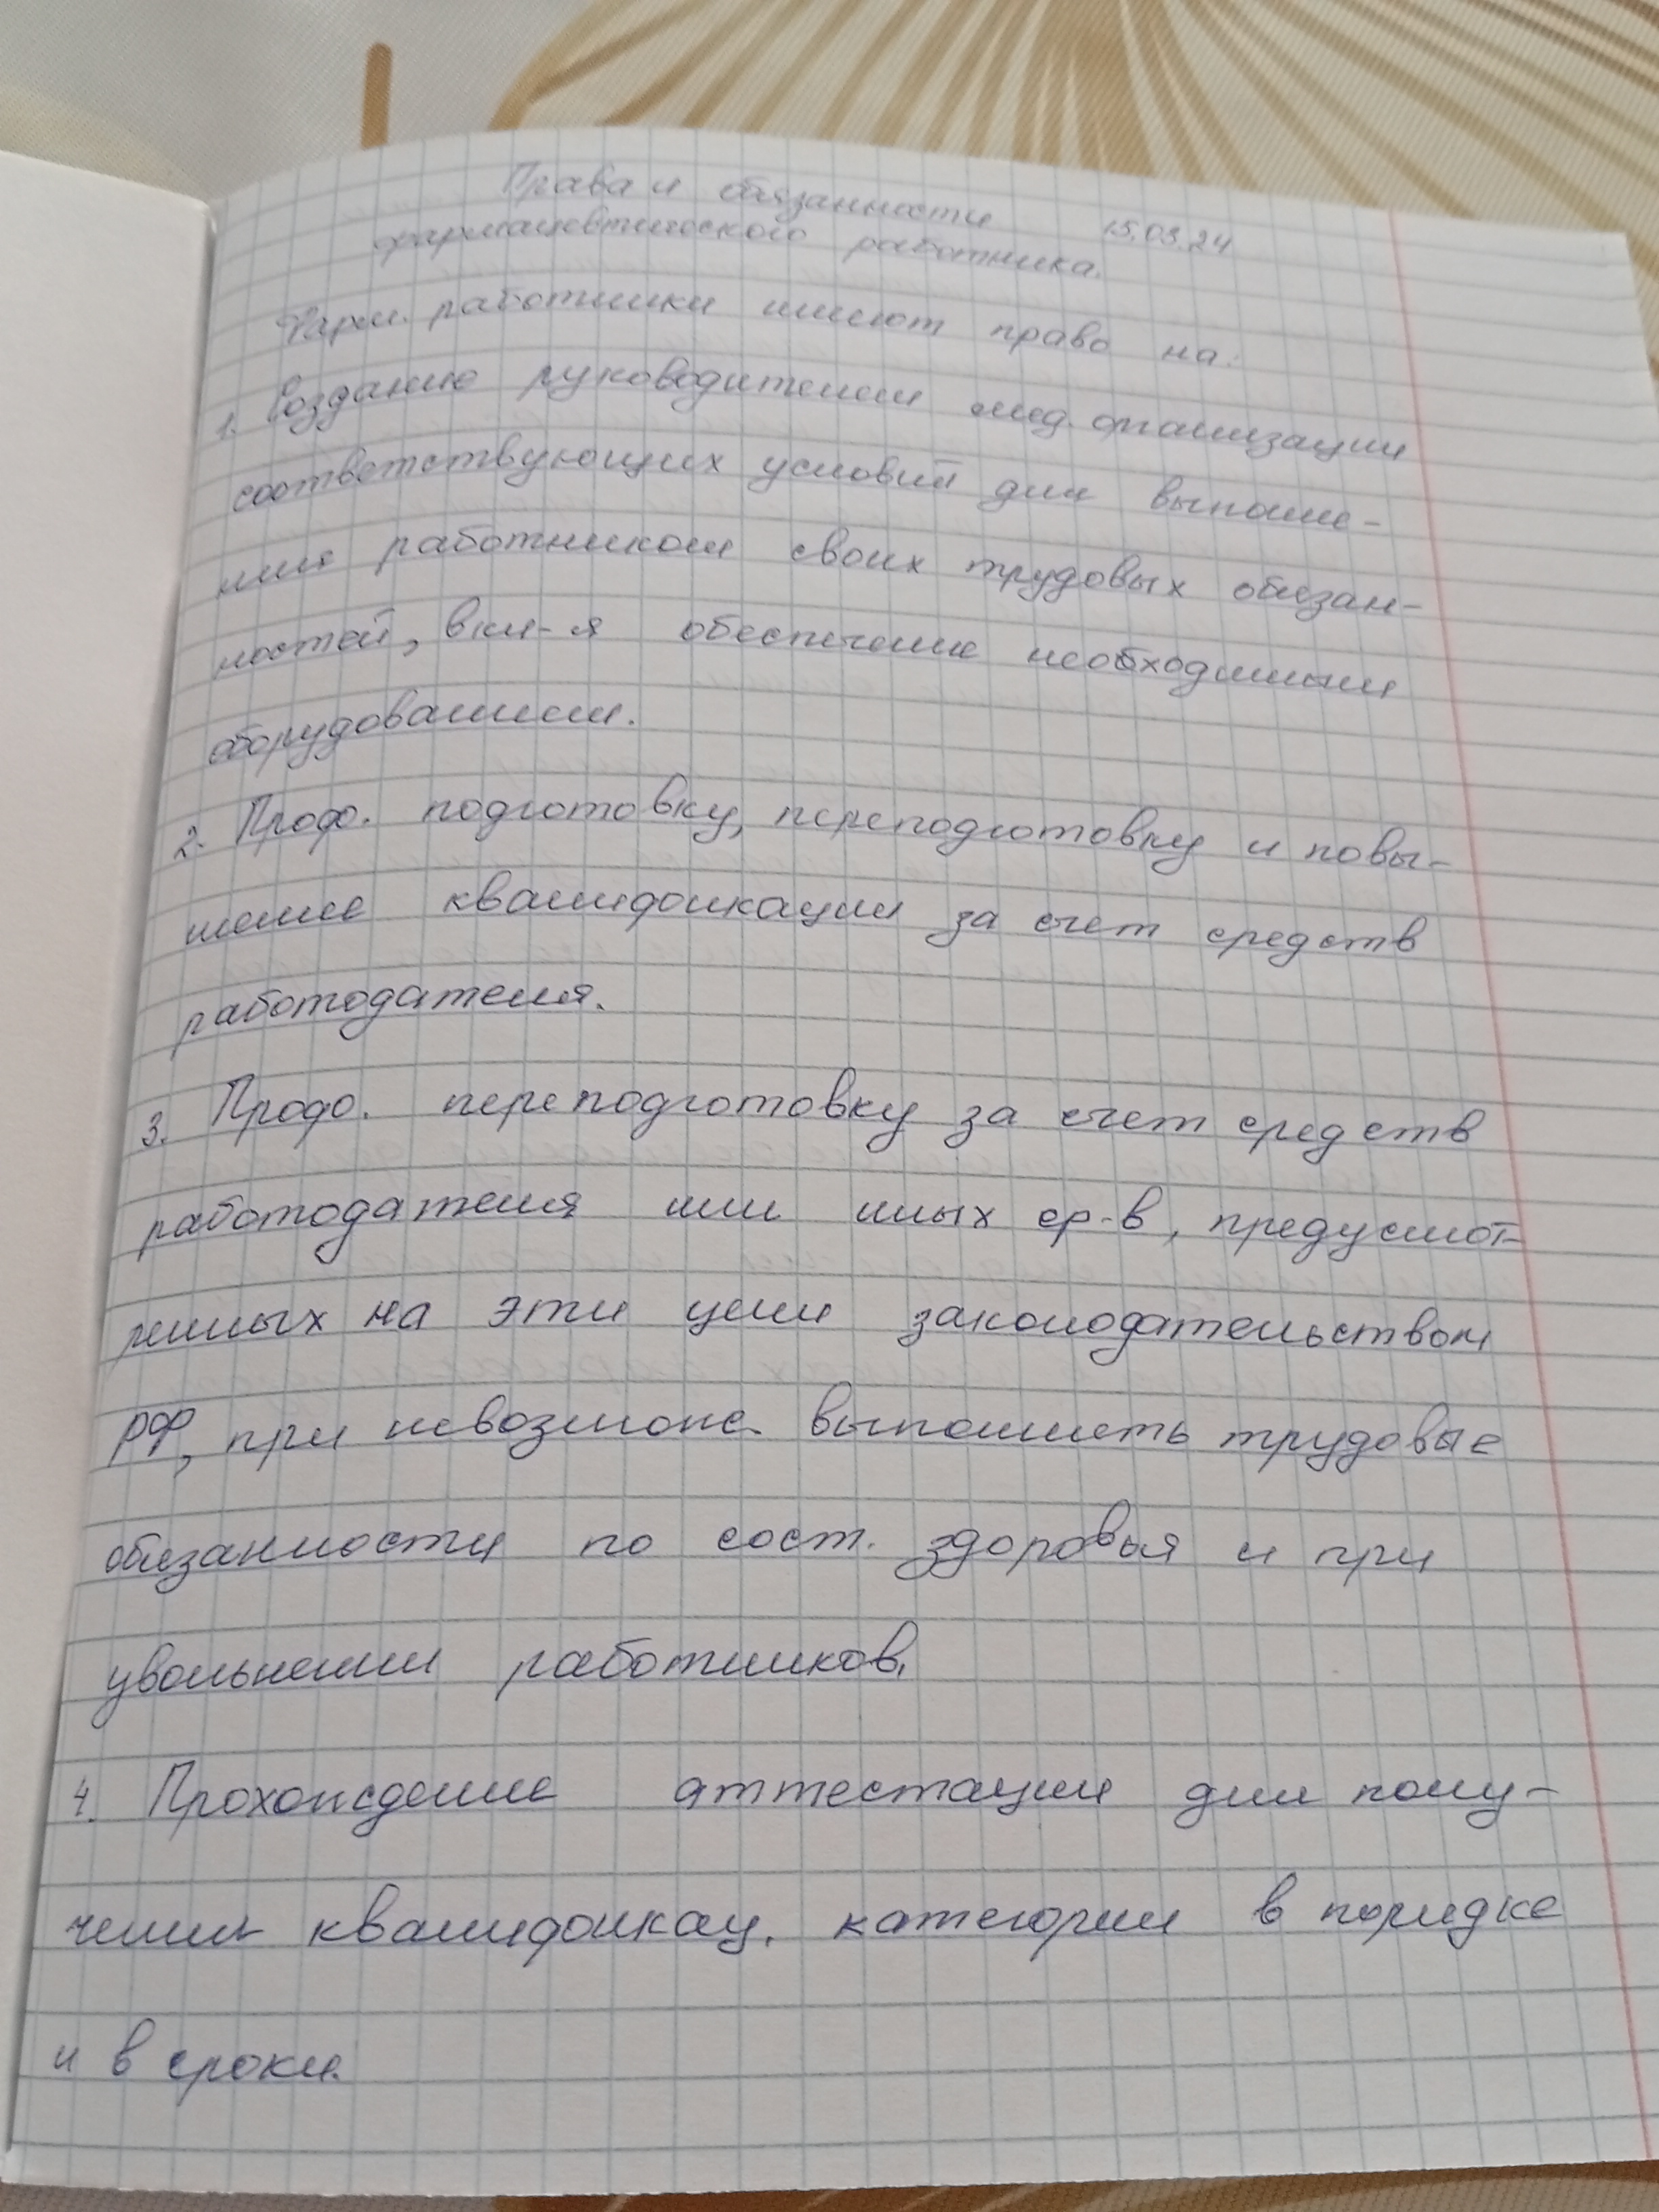 Права и обязанности 15.03.24
фармацевтического работника.
Фарм. работники имеют право на:
1. Создание руководителем мед. организации
соответствующих условий для выполне-
ния работником своих трудовых обязан-
ностей, вкл-я обеспечение необходимым
оборудованием.
2. Проф. подготовку, переподготовку и повы-
шение квалификации за счет средств
работодателя.
3. Проф. переподготовку за счет средств
работодателя или иных ср-в, предусмот-
ренных на эти цели законодательством
РФ, при невозможн. выполнять трудовые
обязанности по сост. здоровья и при
увольнении работников.
4. Прохождение аттестации для полу-
чения квалификац. категории в порядке
и в сроки.